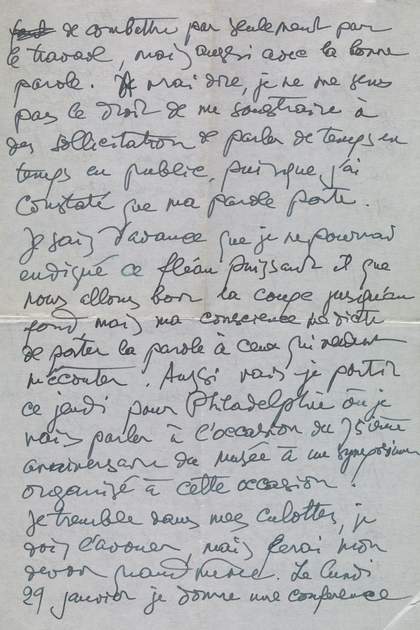 de combattre pas seulement par
le travail, mais aussi avec la bonne
parole. A vrai dire, je ne me sens
pas le droit de me soustraire à
des sollicitation de parler de temps en
temps en public, puisque, j'ai
constaté que ma parole porte.
Je sais d'avance que je ne pourrai
endigué ce fléau puissant et que
nous allons boir la coupe jusqu'au
fond mais ma conscience me dicte
de porter la parole à ceux qui veulent
m'écouter. Aussi vais-je partir
ce jeudi pour Philadelphie où je
vais parler à l'occasion du 75ième
anniversaire du musée à un symposium
organisé à cette occasion.
Je tremble dans mes culottes, je
dois l'avouer, mais ferai mon
devoir quand même. Le lundi
29 janvier je donne une conférence